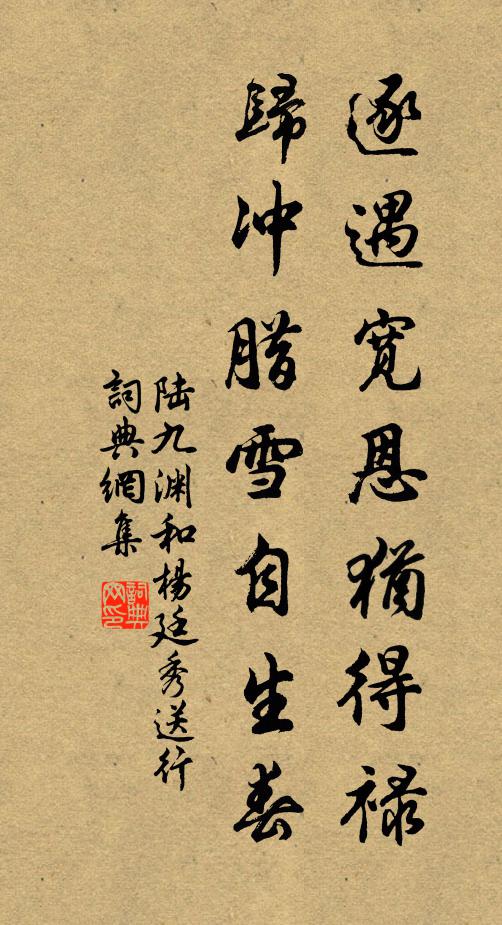 逐遇寬恩猶得祿
歸冲腊雪自生春
陆九渊和楊廷秀送行
詞典網集
詞典网印